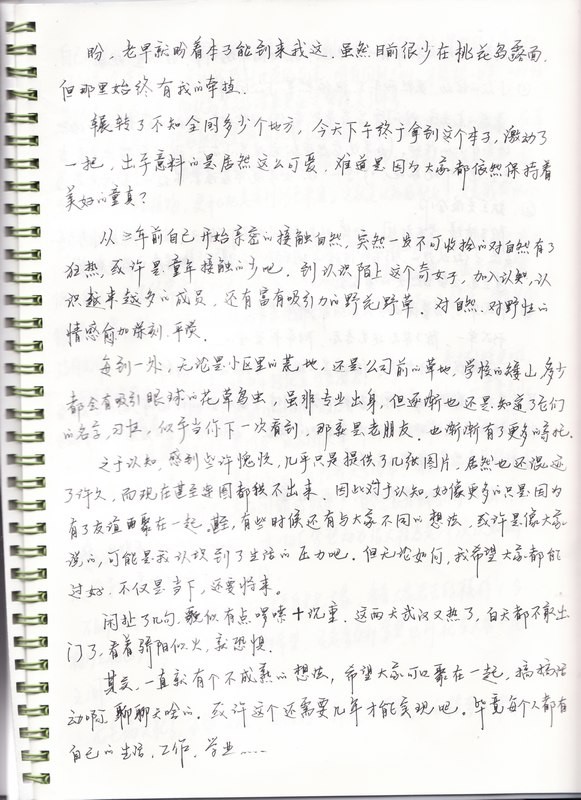 盼,老早就盼着本子能到来我这.虽然目前很少在桃花岛露面.
但那里始终有我的牵挂.
辗转了不知全国多少个地方,今天下午终于拿到这个本子,激动了
一把,出乎意料的是居然这么可爱.难道是因为大家都依然保持着
美好的童真?
从二年前自己开始亲密的接触自然,突然一发不可收拾的对自然有了
狂热,或许是童年接触的少吧.到认识陌上这个奇女子,加入认知,认
识越来越多的成员,还有富有吸引力的野花野草.对自然.对野性的
情感愈加深刻.平淡.
每到一处,无论是小区里的荒地,还是公司前的草地,学校的矮山,多少
都会有吸引眼球的花草鸟虫,虽非专业出身,但逐渐也还是知道了它们
的名字,习性,似乎当你下一次看到,那真是老朋友.也渐渐有了更多的寄托.
之于认知,感到些许愧疚,几乎只是提供了几张图片.居然也还混迹
了许久,而现在甚至连图都找不出来.因此对于认知,好像更多的只是因为
有了友谊而聚在一起.有些时候还有与大家不同的想法,或许是像大家
说的,可能是我认识到了生活的压力吧.但无论如何,我希望大家都能
过好.不仅是当下,还要将来.
闲扯了几句.貌似有点啰嗦+沉重.这两天武汉又热了,白天都不敢出
门了,看着骄阳似火,就恐惧.
其实,一直就有个不成熟的想法,希望大家可以聚在一起,搞搞活
动啊,聊聊天啥的.或许这个还需要几年才能实现吧.毕竟每个人都有
自己的生活.工作.学业……